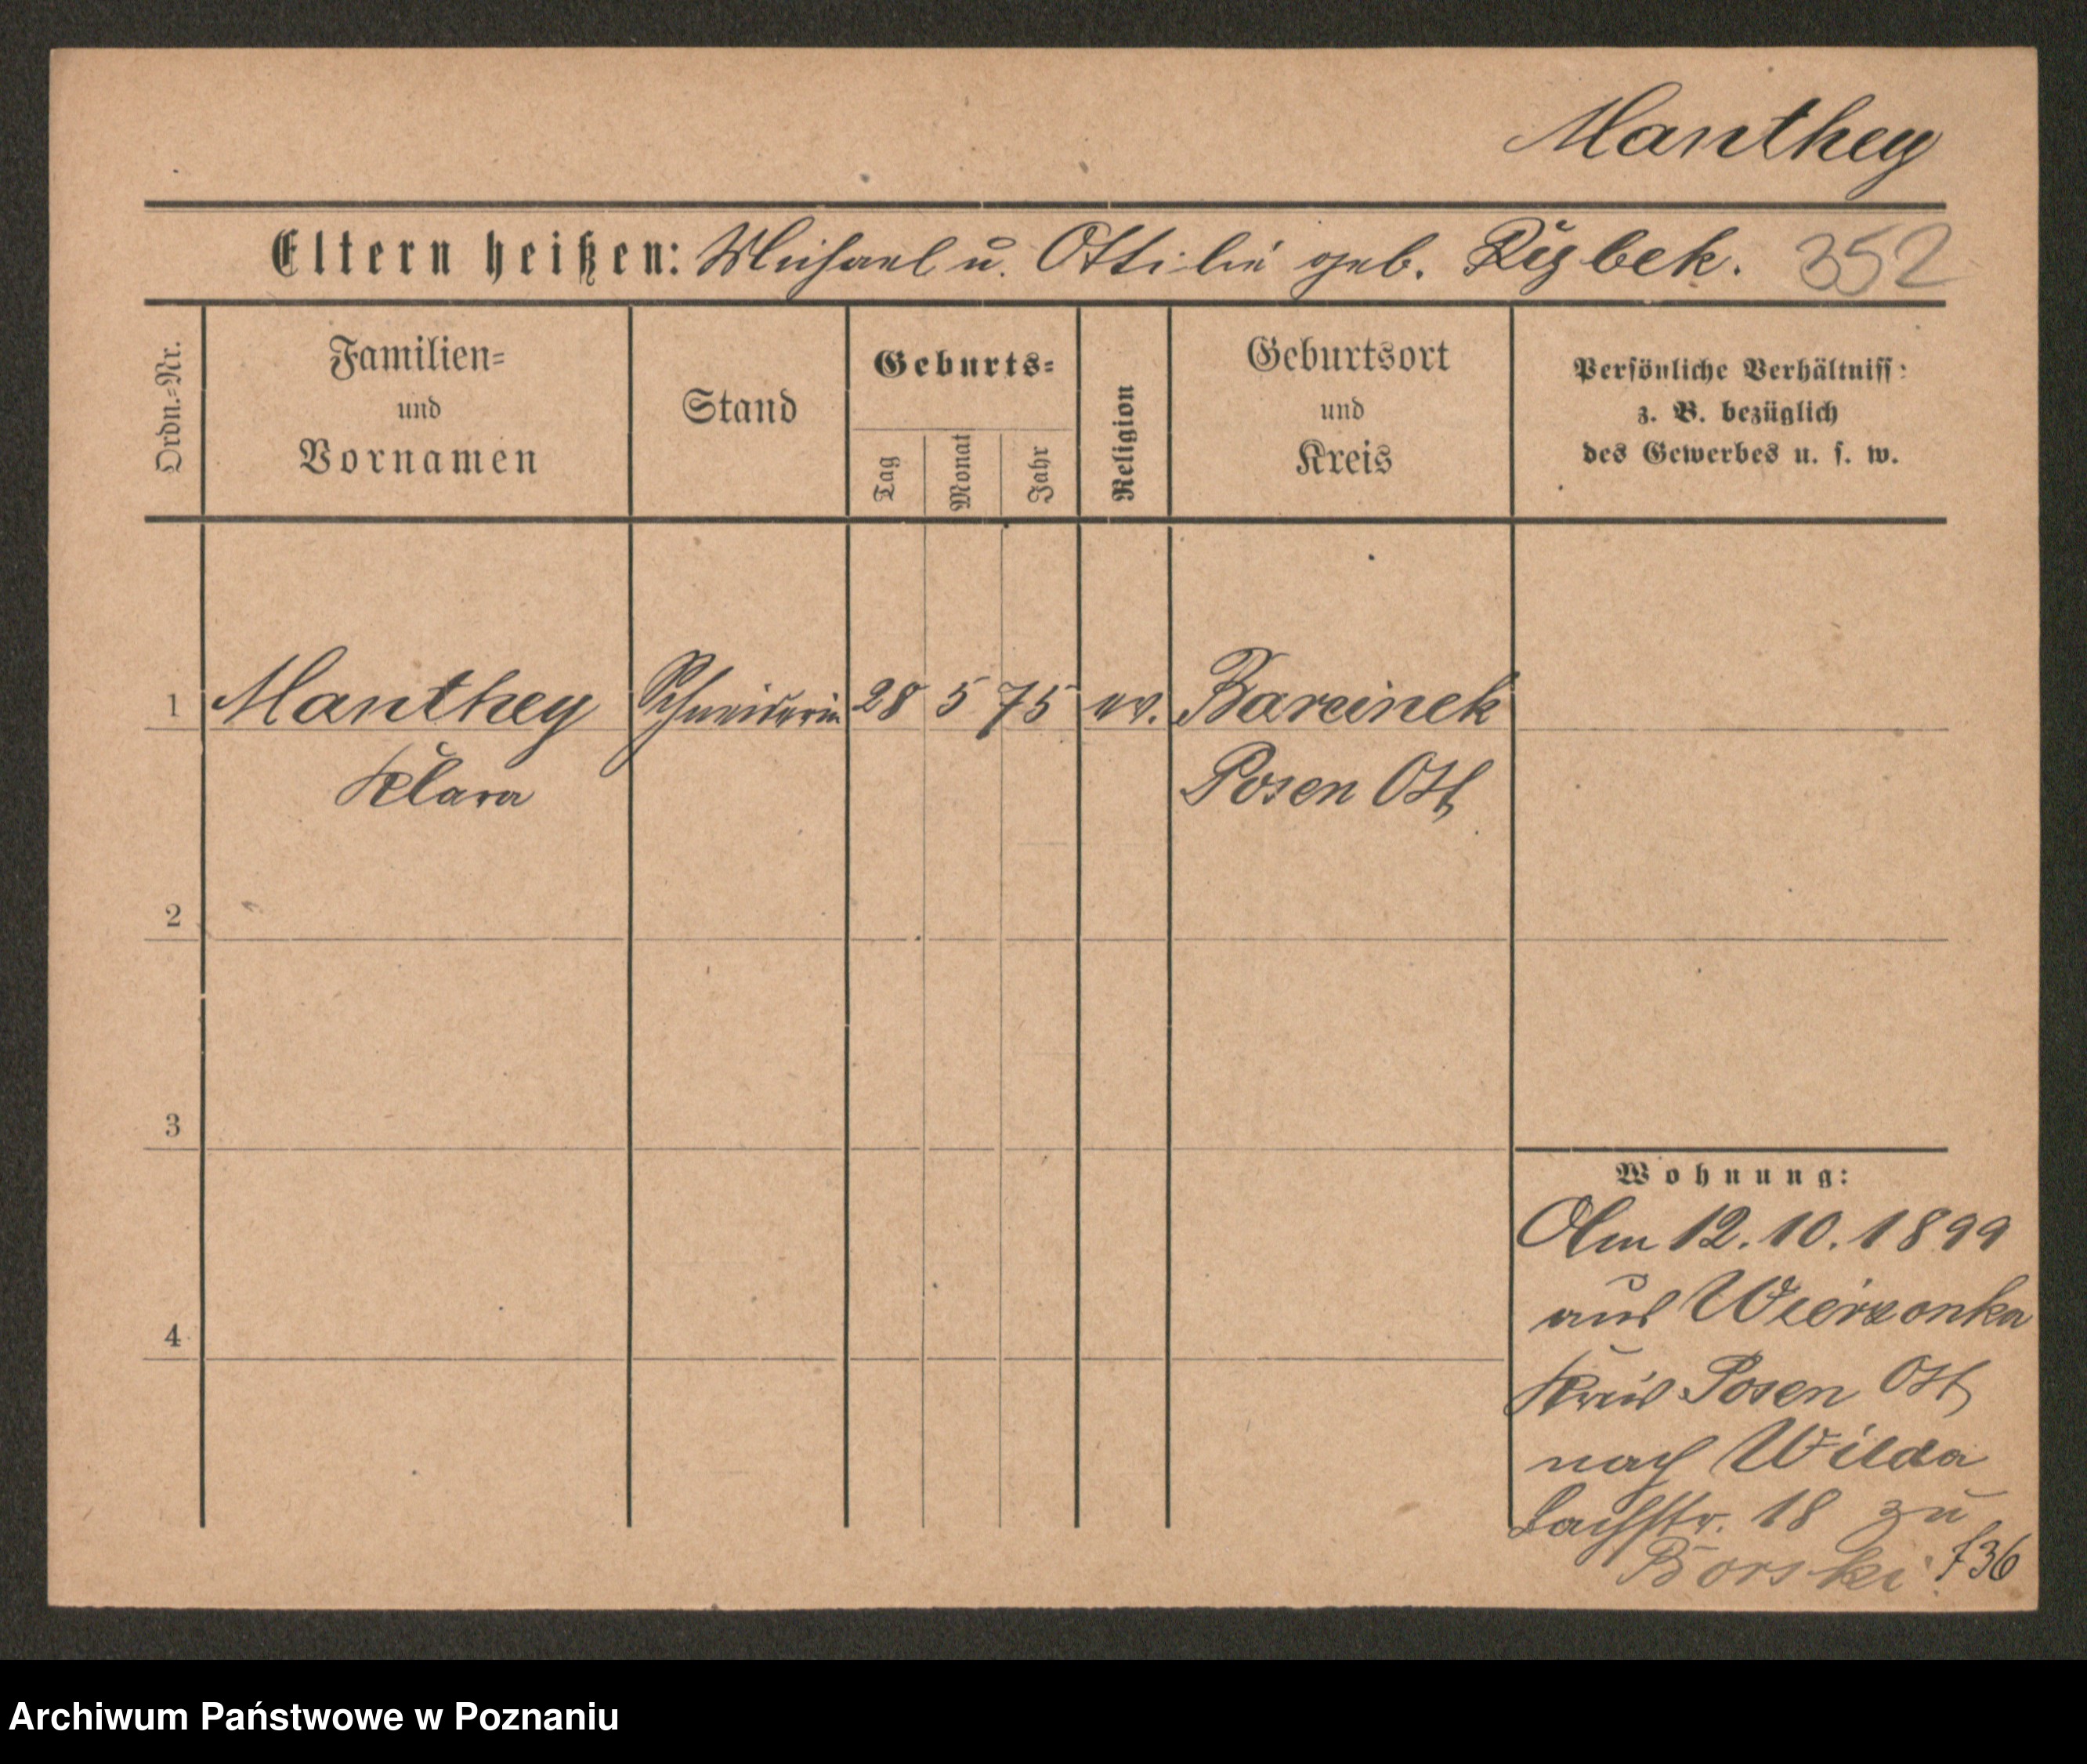 Manthey
Eltern heißen: Michael u. Ottilie geb. Rybek. 352
Ordn.-Nr.
Familien-
und
Vornamen
Stand
Geburts-
Tag
Monat
Jahr
Religion
Geburtsort
und
Kreis
Persönliche Verhältniss:
z. B. bezüglich
des Gewerbes u. s. w.
1 Manthey Schneiderin 28 5 75 ev. Barcinek
Klara Posen Ost
2
3
4
Wohnung:
Am 12.10.1899
aus Wierzonka
Kreis Posen Ost
nach Wilda
Bachstr. 18 zu
Borski 736
Archiwum Państwowe w Poznaniu